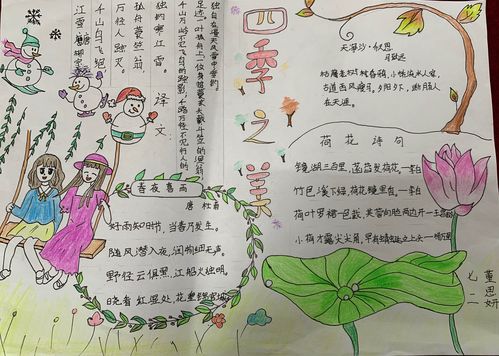 江雪 唐 柳宗元
千山鸟飞绝
万径人踪灭。
孤舟蓑笠翁
独钓寒江雪。
译文
千山万岭不见飞鸟的踪影，千路万径不见行人的
足迹。一叶孤舟上，一位身披蓑衣头戴斗笠的渔翁
独自在漫天风雪中垂钓
春夜喜雨
唐 杜甫
好雨知时节，当春乃发生。
随风潜入夜，润物细无声。
野径云俱黑，江船火独明。
晓看红湿处，花重锦官城。
四季之美
天净沙·秋思
马致远
枯藤老树昏鸦，小桥流水人家，
古道西风瘦马。夕阳西下，断肠人
在天涯。
荷花诗句
镜湖三百里，菡萏发荷花。—李白
竹色溪下绿，荷花镜里香。—李白
荷叶罗裙一色裁，芙蓉向脸两边开—王昌龄
小荷才露尖尖角，早有蜻蜓立上头—杨万里
七二
董思妍